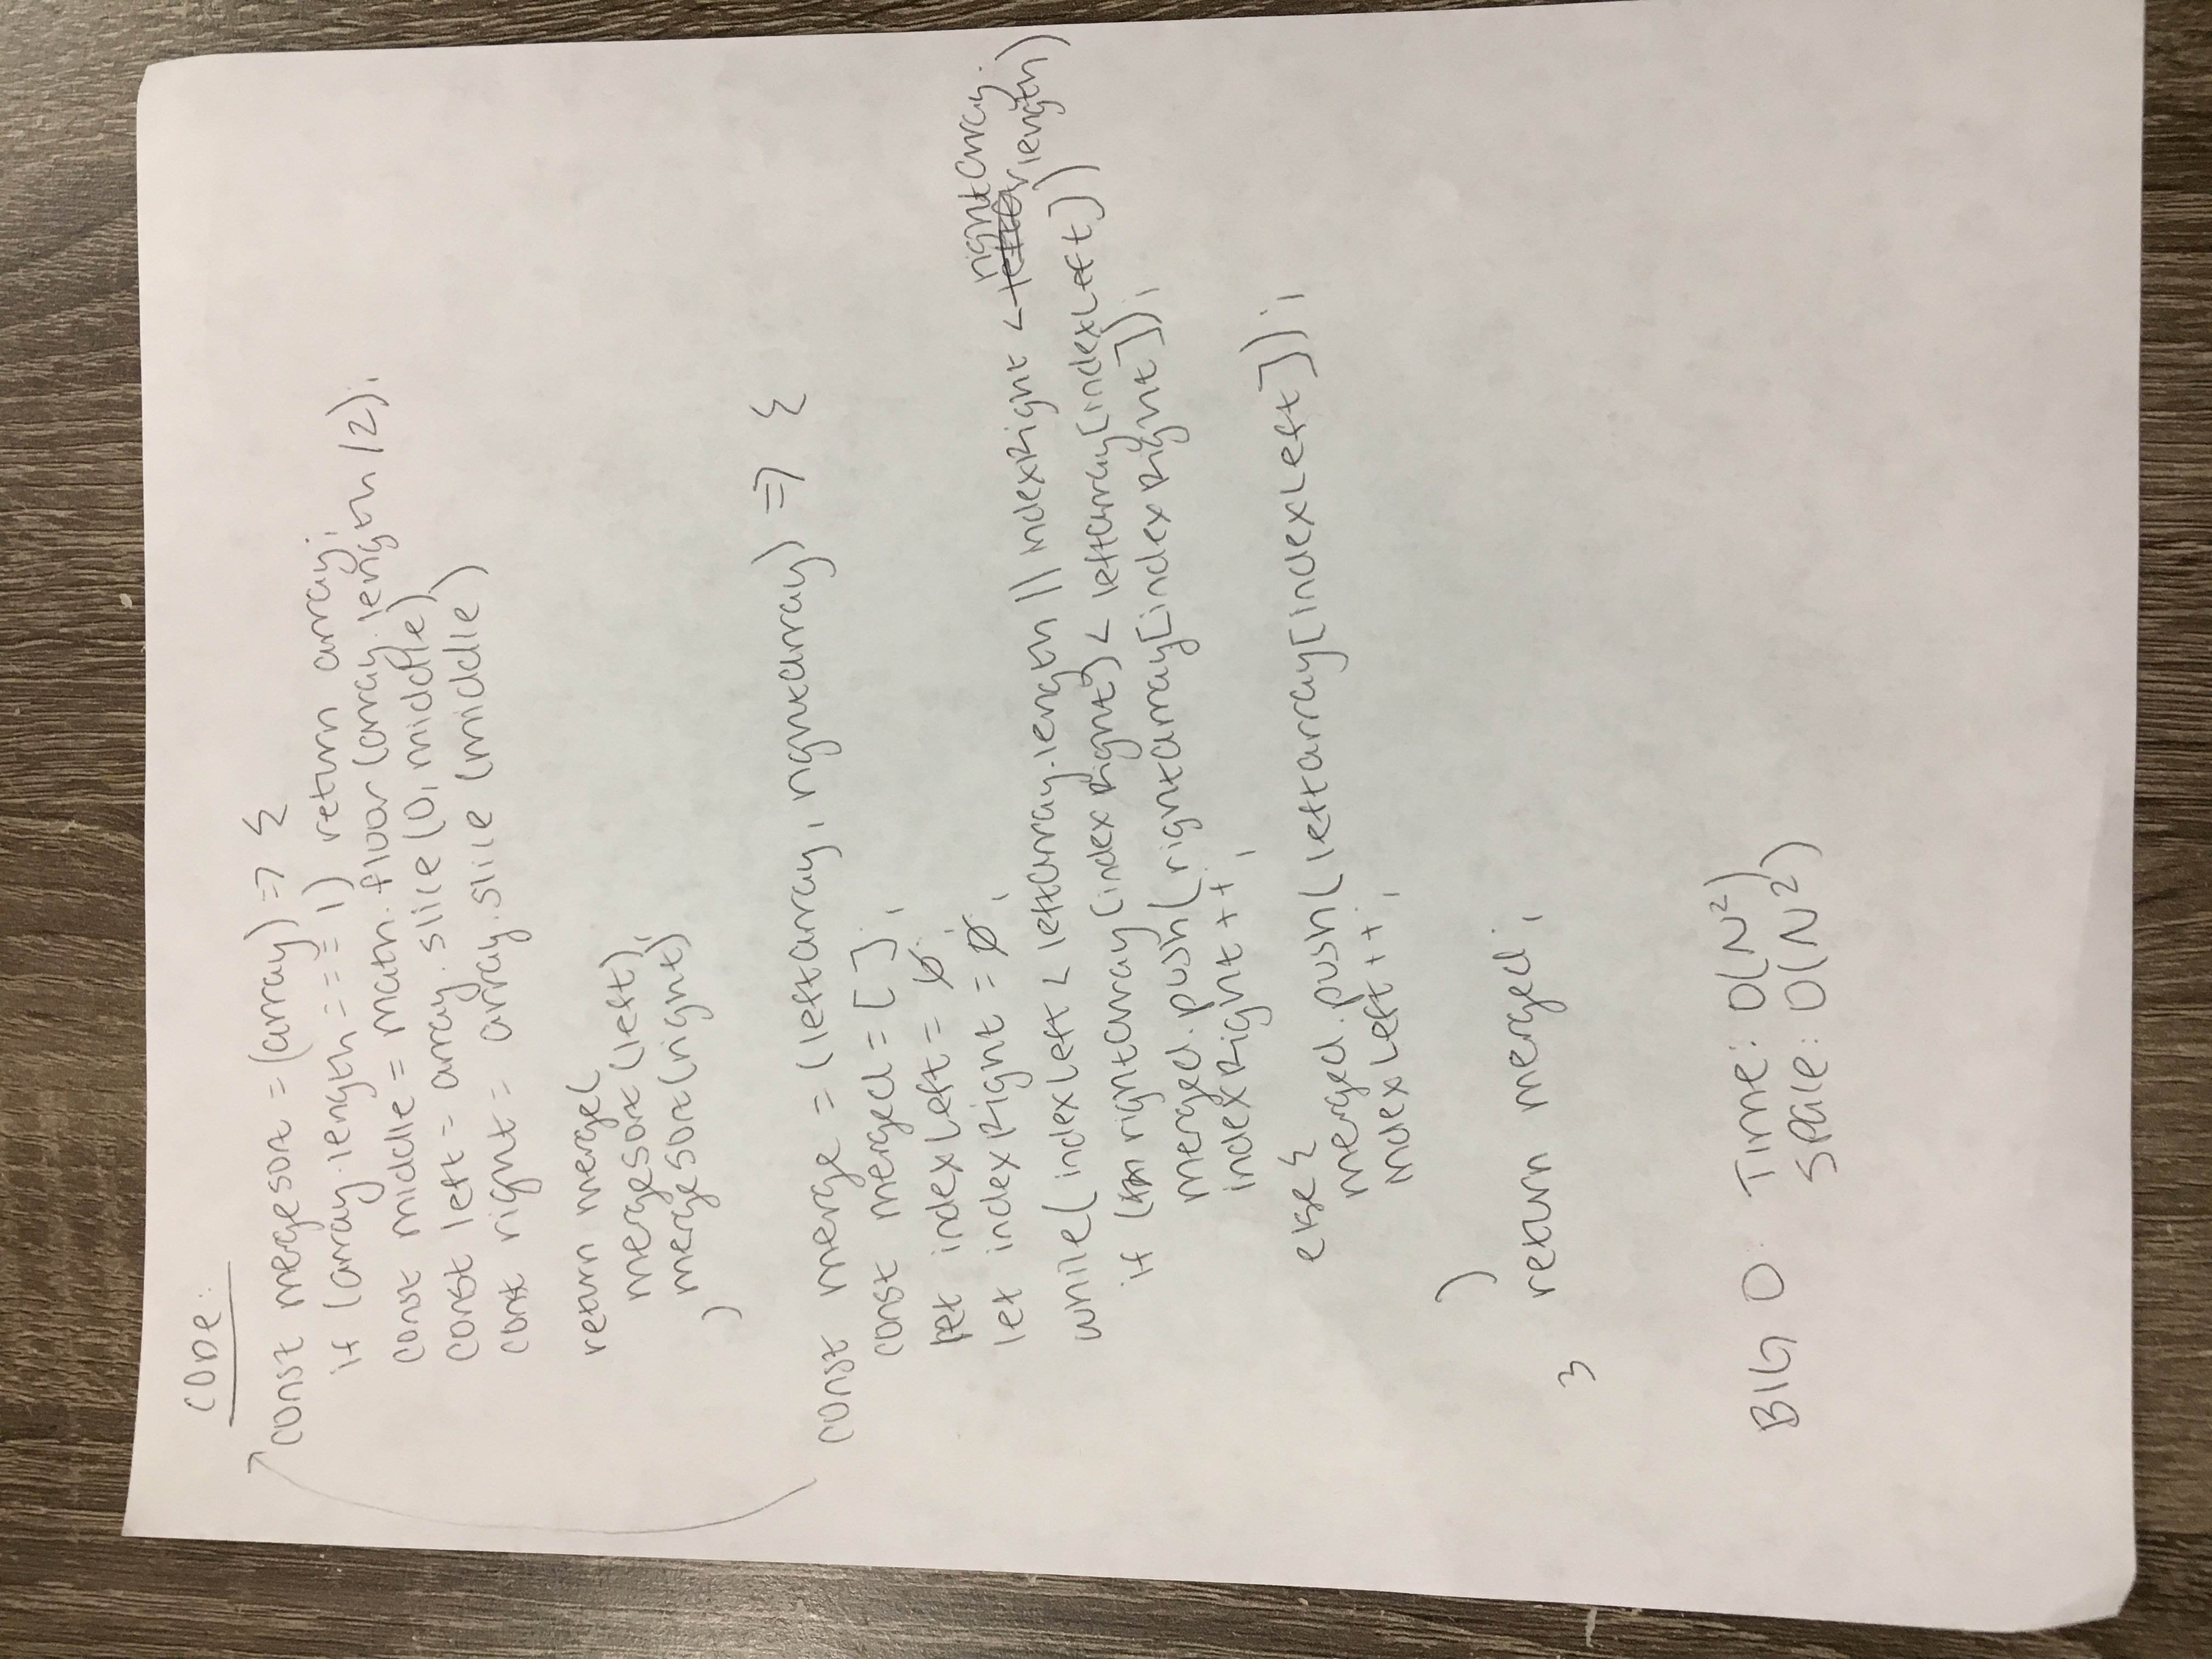 CODE:
const mergesort = (array) => {
if (array.length === 1) return array;
const middle = math.floor(array.length /2);
const left = array.slice(0, middle)
const right = array.slice(middle)
return merge(
mergesort(left),
mergesort(right)
)
const merge = (leftarray, rightarray) => {
const merged = [];
let indexLeft = 0;
let indexRight = 0;
rightarray.
while( indexLeft < leftarray.length || indexRight < length)
if ( rightarray[indexRight] < leftarray[indexLeft])
merged.push(rightarray[indexRight]);
indexRight++;
else {
merged.push(leftarray[indexLeft]);
indexLeft++;
)
return merged;
}
BIG O: Time: O(N²)
Space: O(N²)